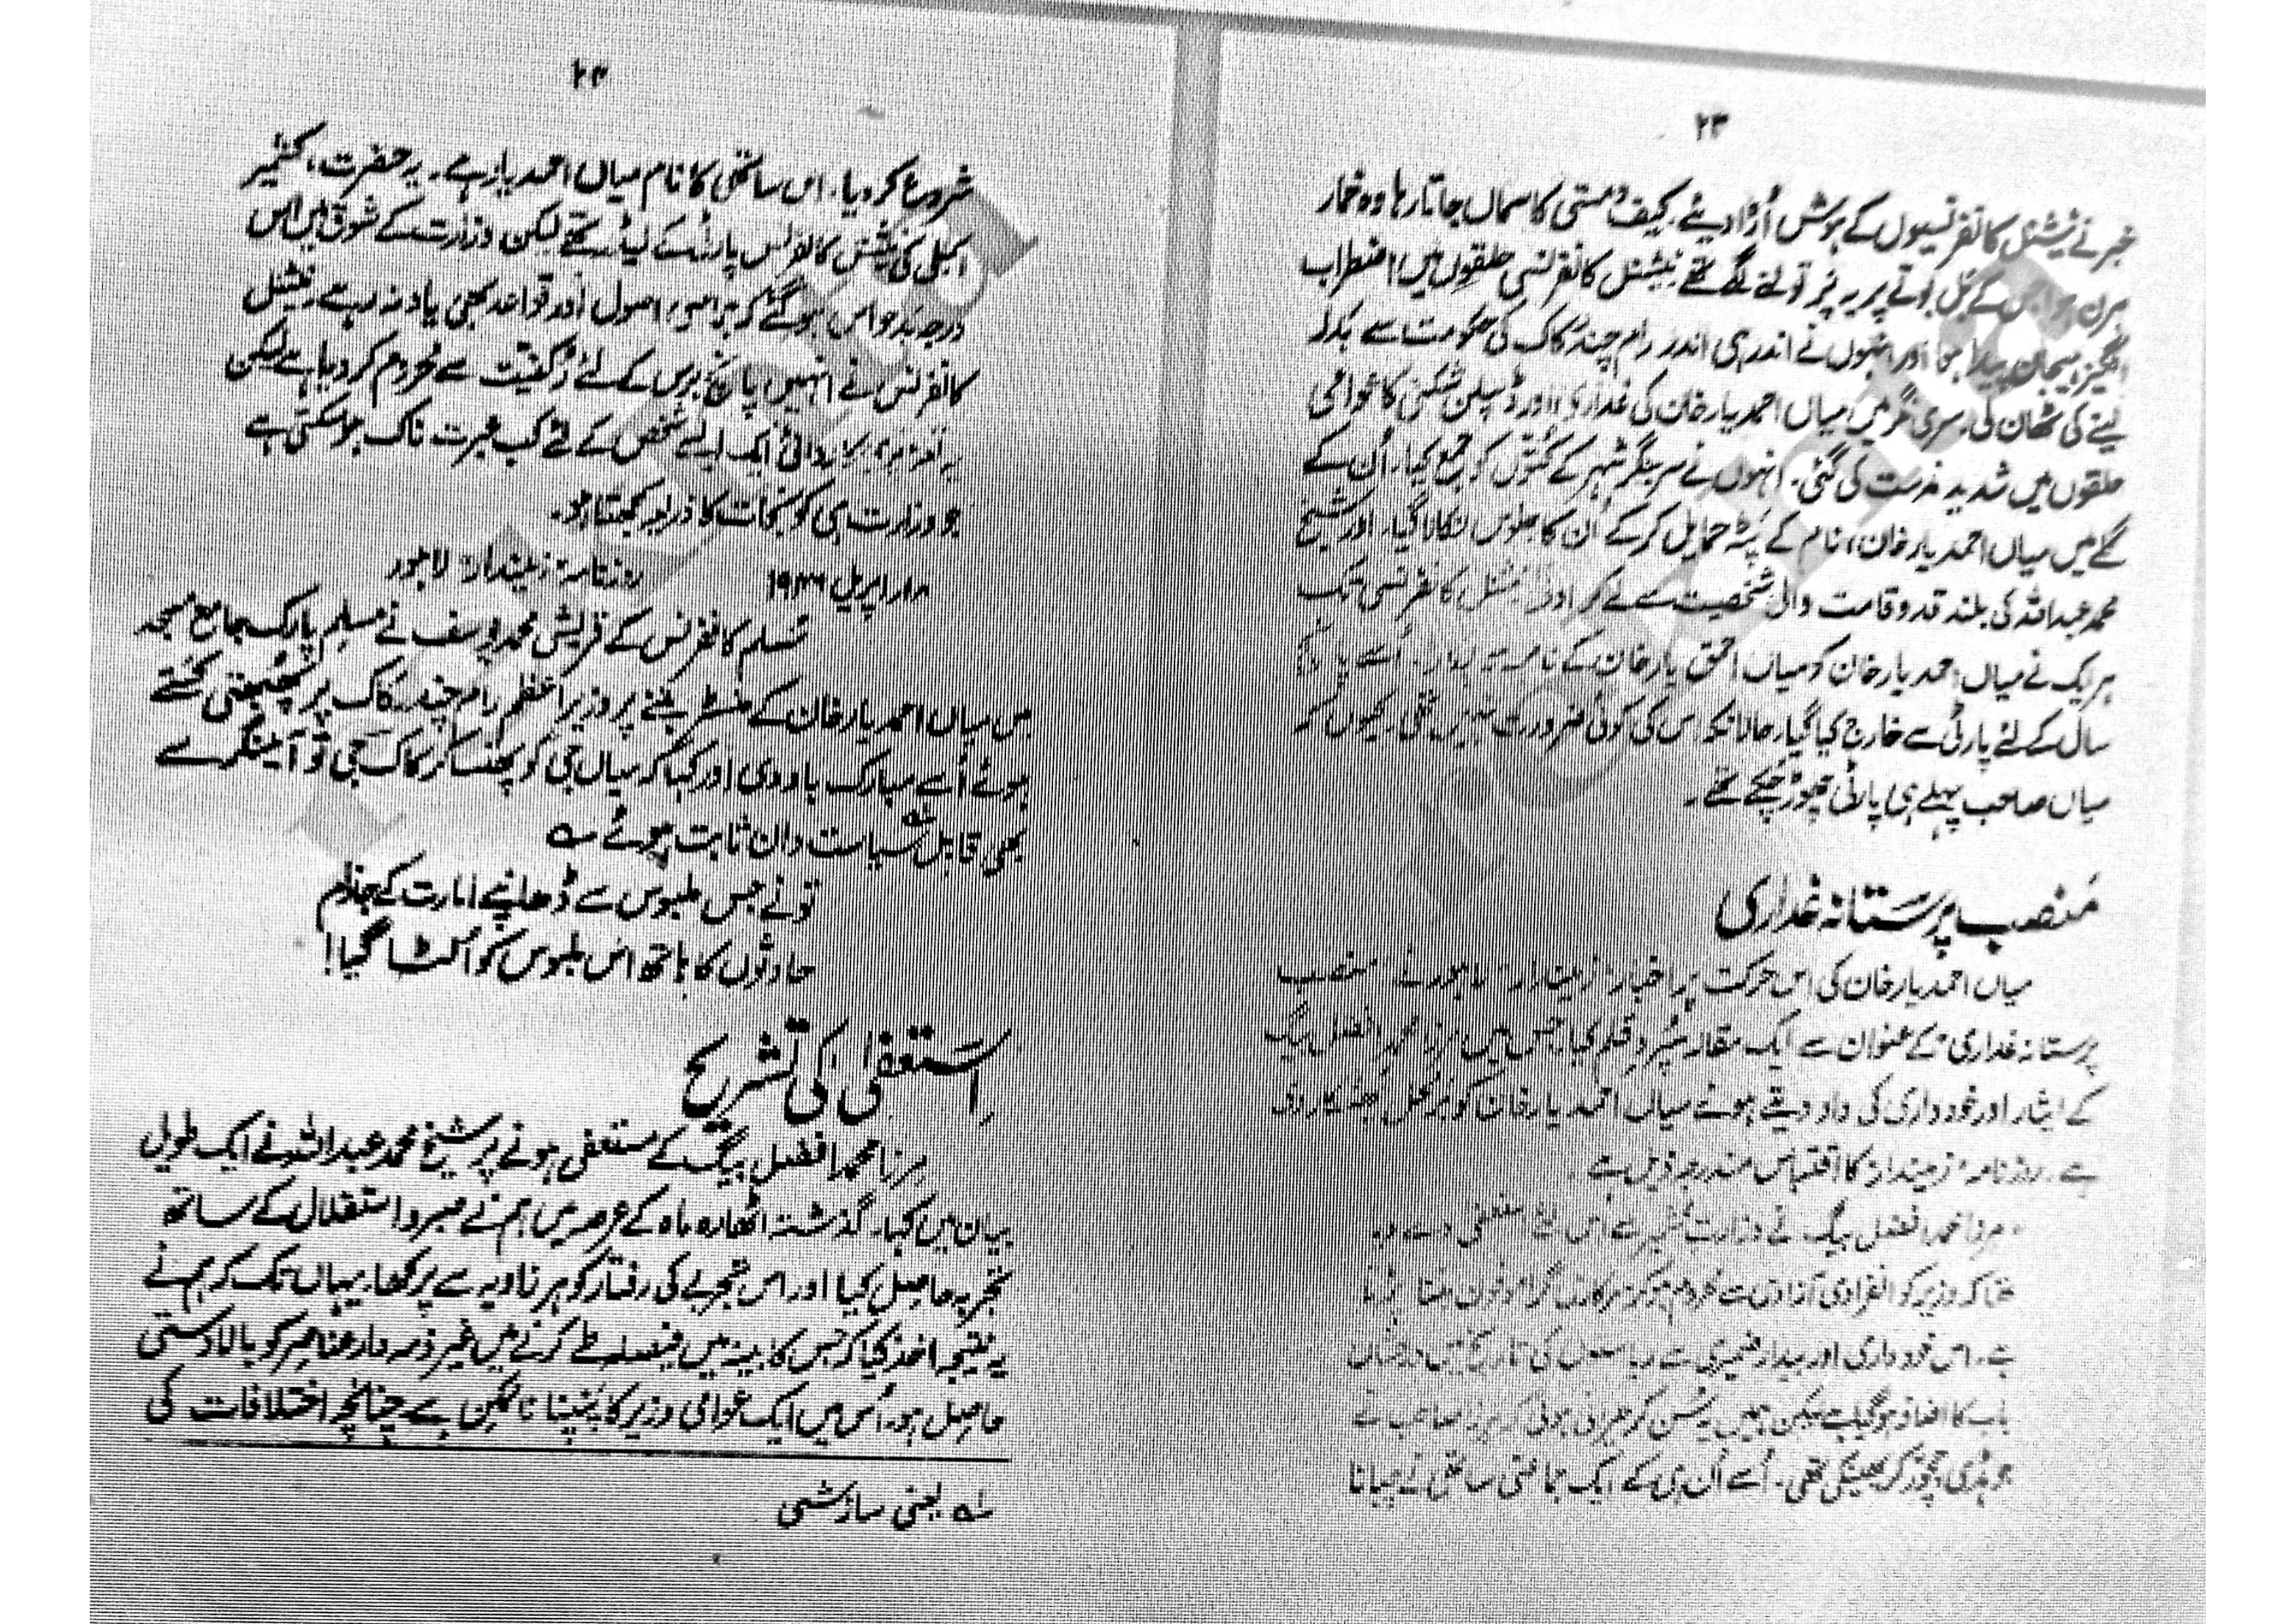 ۲۳
خبر نے نیشنل کانفرنسیوں کے ہوش اُڑا دیئے۔ کیف و مستی کا سماں جاتا رہا وہ خمار
ہرن ہوا جس کے بل بوتے پر یہ پر تولنے لگے تھے نیشنل کانفرنسی حلقوں میں اضطراب
انگیز ہیجان پیدا ہوا اور انہوں نے اندر ہی اندر رام چند کاک کی حکومت سے بدلہ
لینے کی ٹھان لی۔ سری نگر میں میاں احمد یار خان کی غداری اور ڈسپلن شکنی کا عوامی
حلقوں میں شدید مذمت کی گئی۔ انہوں نے سرینگر شہر کے کتوں کو جمع کیا۔ اُن کے
گلے میں میاں احمد یار خان، نام کے پٹے حمایل کر کے اُن کا جلوس نکالا گیا۔ اور شیخ
محمد عبداللہ کی بلند قد و قامت والی شخصیت سے لے کر ادنیٰ نیشنل کانفرنسی تک
ہر یک نے میاں احمد یار خان کو میاں احمق یار خان کے نام سے پکارا۔ اُسے پانچ
سال کے لئے پارٹی سے خارج کیا گیا۔ حالانکہ اس کی کوئی ضرورت نہیں تھی۔ کیوں کہ
میاں صاحب پہلے ہی پارٹی چھوڑ چکے تھے۔
مَنصب پرستانہ غداری
میاں احمد یار خان کی اس حرکت پر اخبار "زمیندار" لاہور نے "منصب
پرستانہ غداری" کے عنوان سے ایک مقالہ سپردِ قلم کیا۔ جس میں مرزا محمد افضل بیگ
کے ایثار اور خود داری کی داد دیتے ہوئے میاں احمد یار خان کو
ہے۔ روزنامہ زمیندار کا اقتباس مندرجہ ذیل ہے
"مرزا محمد افضل بیگ نے وزارت کشمیر سے اس لئے استعفیٰ دے دیا
تھا کہ وزیر کو انفرادی آزادی سے محروم ہو کر سرکاری گراموفون بننا پڑتا
ہے۔ اس خود داری اور بیدار ضمیری سے ریاستوں کی تاریخ میں درخشاں
باب کا اضافہ ہو گیا ہے لیکن ہمیں یہ سُن کر حیرانی ہوئی کہ مرزا صاحب نے
جو ہڈی چچوڑ کر پھینکی تھی۔ اُسے اُن ہی کے ایک جماعتی ساتھی نے چبانا
۲۴
شروع کر دیا۔ اس ساتھی کا نام میاں احمد یار ہے۔ یہ حضرت، کشمیر
اسمبلی کی نیشنل کانفرنس پارٹی کے لیڈر تھے لیکن وزارت کے شوق میں اس
درجہ بدحواس ہو گئے کہ اصول اور قواعد بھی یاد نہ رہے۔ نیشنل
کانفرنس نے انہیں پانچ برس کے لئے رُکنیت سے محروم کر دیا ہے لیکن
یہ تعزیری کارروائی ایک ایسے شخص کے لئے کب عبرت ناک ہو سکتی ہے
جو وزارت ہی کو نجات کا ذریعہ سمجھتا ہو۔
اپریل ۱۹۴۶ روزنامہ زمیندار لاہور
مُسلم کانفرنس کے قریشی محمد یوسف نے مسلم پارک جامع مسجد
میں میاں احمد یار خان کے منسٹر بننے پر وزیر اعظم رام چند کاک پر پھبتی کستے
ہوئے اُسے مبارک باد دی اور کہا کہ میاں جی کو پھنسا کر کاک جی تو آئینگر سے
بھی قابل سیاست دان ثابت ہوئے ؎
تو نے جس ملبوس سے ڈھانپے امارت کے جذام
حادثوں کا ہاتھ اس ملبوس کو اُلٹا گیا!
اِستعفیٰ کی تشریح
مرزا محمد افضل بیگ کے مستعفی ہونے پر شیخ محمد عبداللہ نے ایک طویل
بیان میں کہا۔ گذشتہ اٹھارہ ماہ کے عرصہ میں ہم نے صبر و استقلال کے ساتھ
تجربہ حاصل کیا اور اس تجربے کی رفتار کو ہر زاویہ سے پرکھا۔ یہاں تک کہ ہم نے
یہ نتیجہ اخذ کیا کہ جس کابینہ میں فیصلے طے کرنے میں غیر ذمہ دار عناصر کو بالا دستی
حاصل ہو، اُس میں ایک عوامی وزیر کا پنپنا ناممکن ہے چنانچہ اختلافات کی
؎ یعنی سازشی